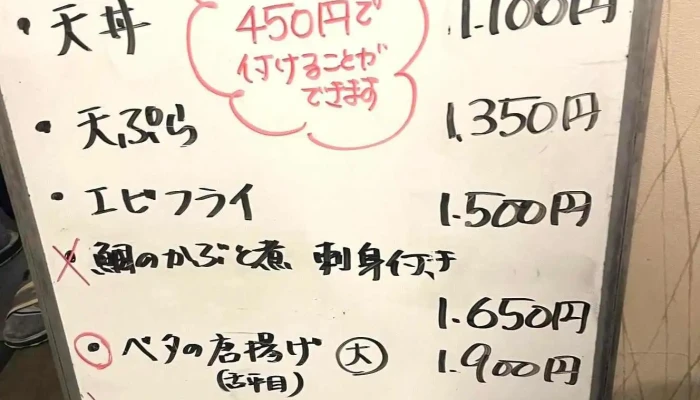 ・天丼 1.100円
450円で
付けることが
できます
・天ぷら 1.350円
・エビフライ 1.500円
・鯛のかぶと煮 刺身付き
1.650円
・ベタの唐揚げ 大 1.900円
(舌平目)